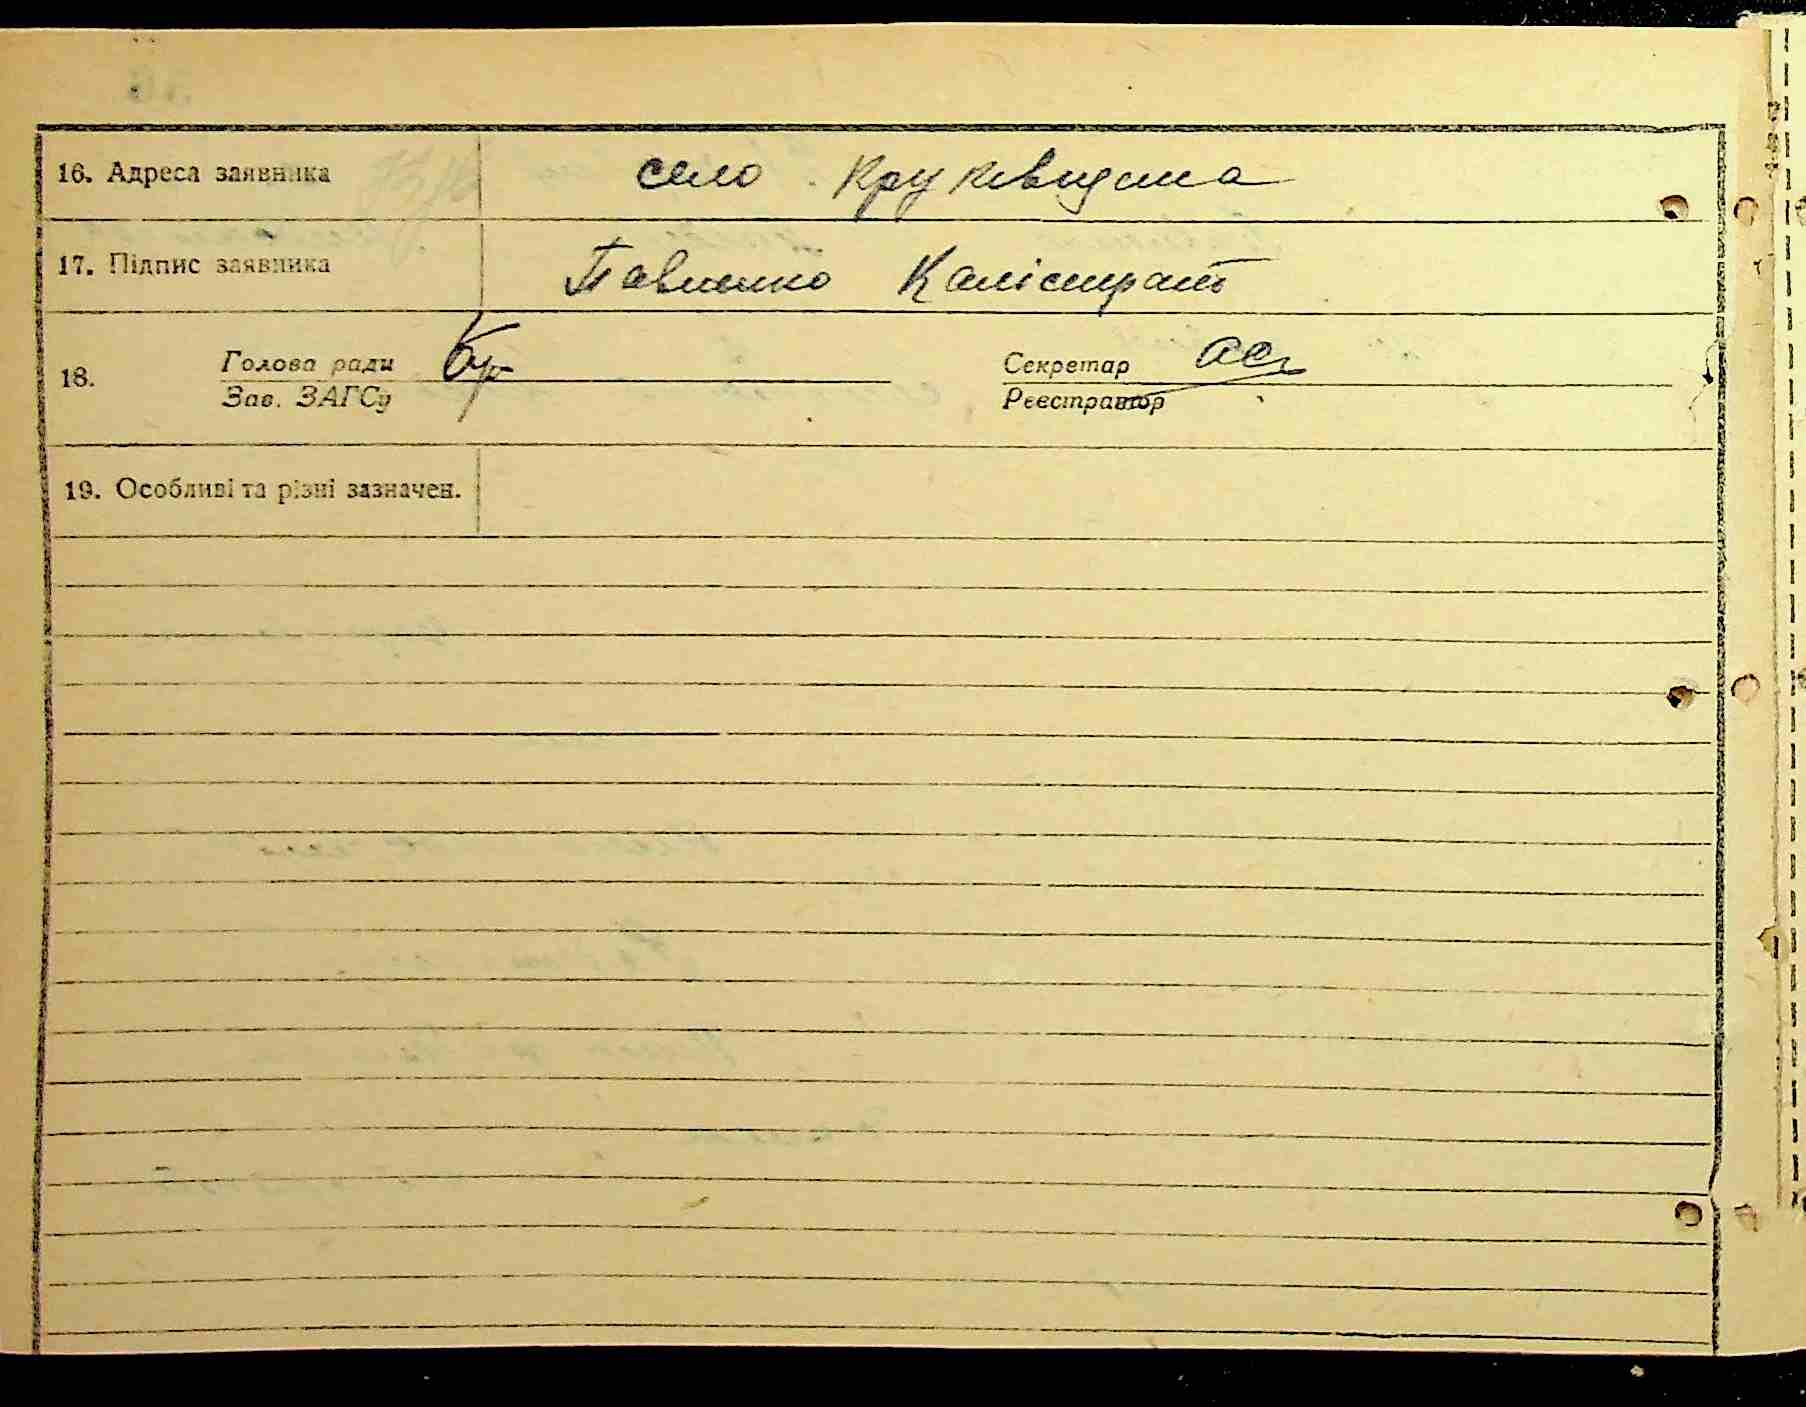 16. Адреса заявника село Круківщина
17. Підпис заявника Павленко Калістрат
18. Голова ради Секретар
Зав. ЗАГСу Реєстратор
19. Особливі та різні зазначен.